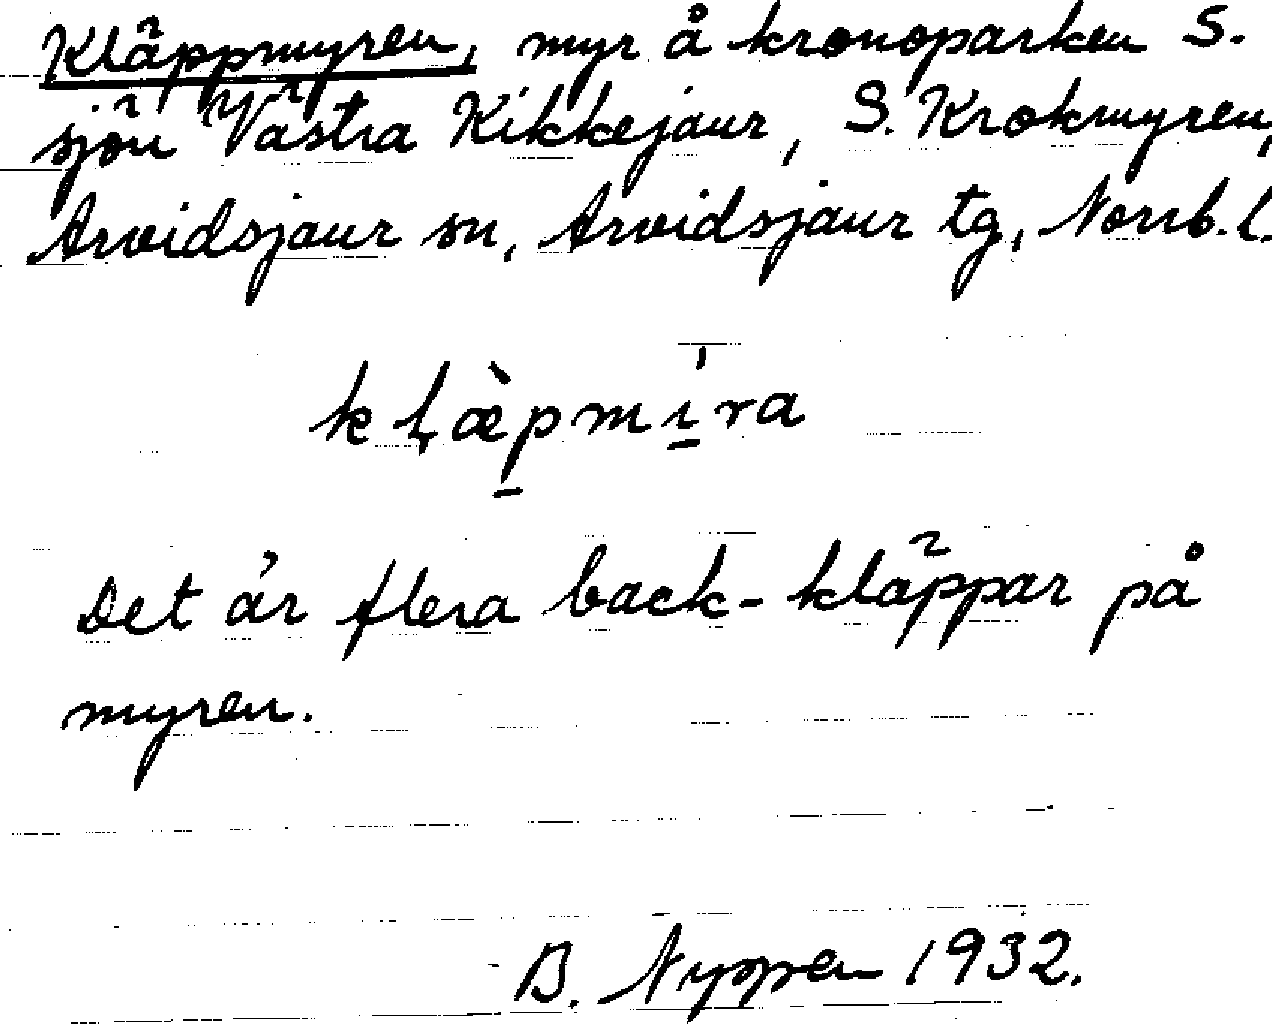 Kläppmyren, myr å kronoparken S.
sjön Västra Kikkejaur, S. Krokmyren,
Arvidsjaur sn, Arvidsjaur tg, Norrb. l.
kḷæ̀p̠mí̠ra
Det är flera back-kläppar på
myren.
B. Nyppen 1932.